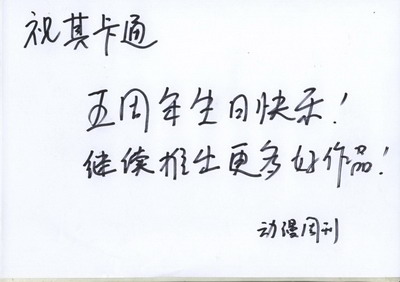 祝其卡通
五周年生日快乐！
继续推出更多好作品！
动漫周刊